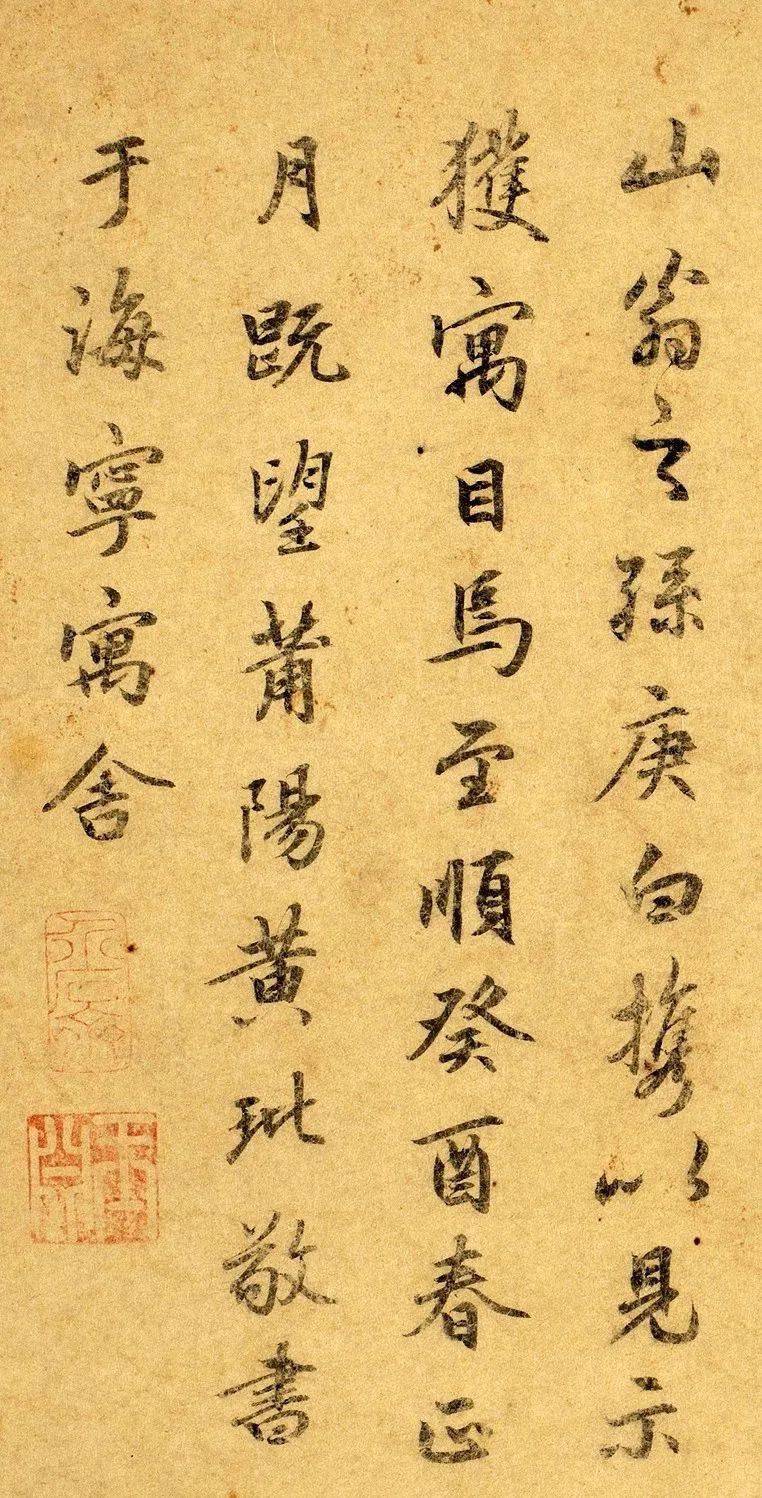 山翁之孫庚白携以見示
獲寓目焉至順癸酉春正
月既望莆陽黃玭敬書
于海寧寓舍